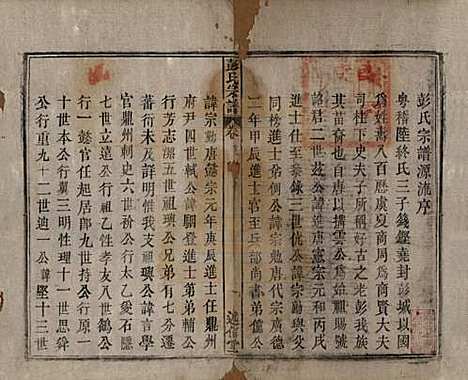 彭氏宗譜源流序
粵稽陸終氏三子籛鏗堯封彭城以國
為姓壽八百歷虞夏商周為商賢大夫
司柱下史夫子所稱好古之老彭我族
其苗裔也四十以撫雲公始祖賜號
諮君二世構雲唐憲宗元和丙戌
進士仕至泰錄三世伉公諱宗勛與弟
同榜進士弟倜公諱宗勉唐代宗廣德
二年甲辰進士官至兵部尚書弟儀公
彭氏宗譜
卷
諱宗勤唐僖宗元年庚辰進士任鼎州
府尹四世軾公諱關登進士弟弟輔公
行芳志源五世祖璵公兄弟有七分遷
蕃衍未及詳明惟我支祖璵公諱言學
官鼎州刺史六世行太乙愛石隱
七世立遠行孝友八世鶴公
行一懿官任起居郎九世持公行原一
十世本公行翼三明理性十一世思舜
公行重九十二世迪一公諱堅十三世
述信堂